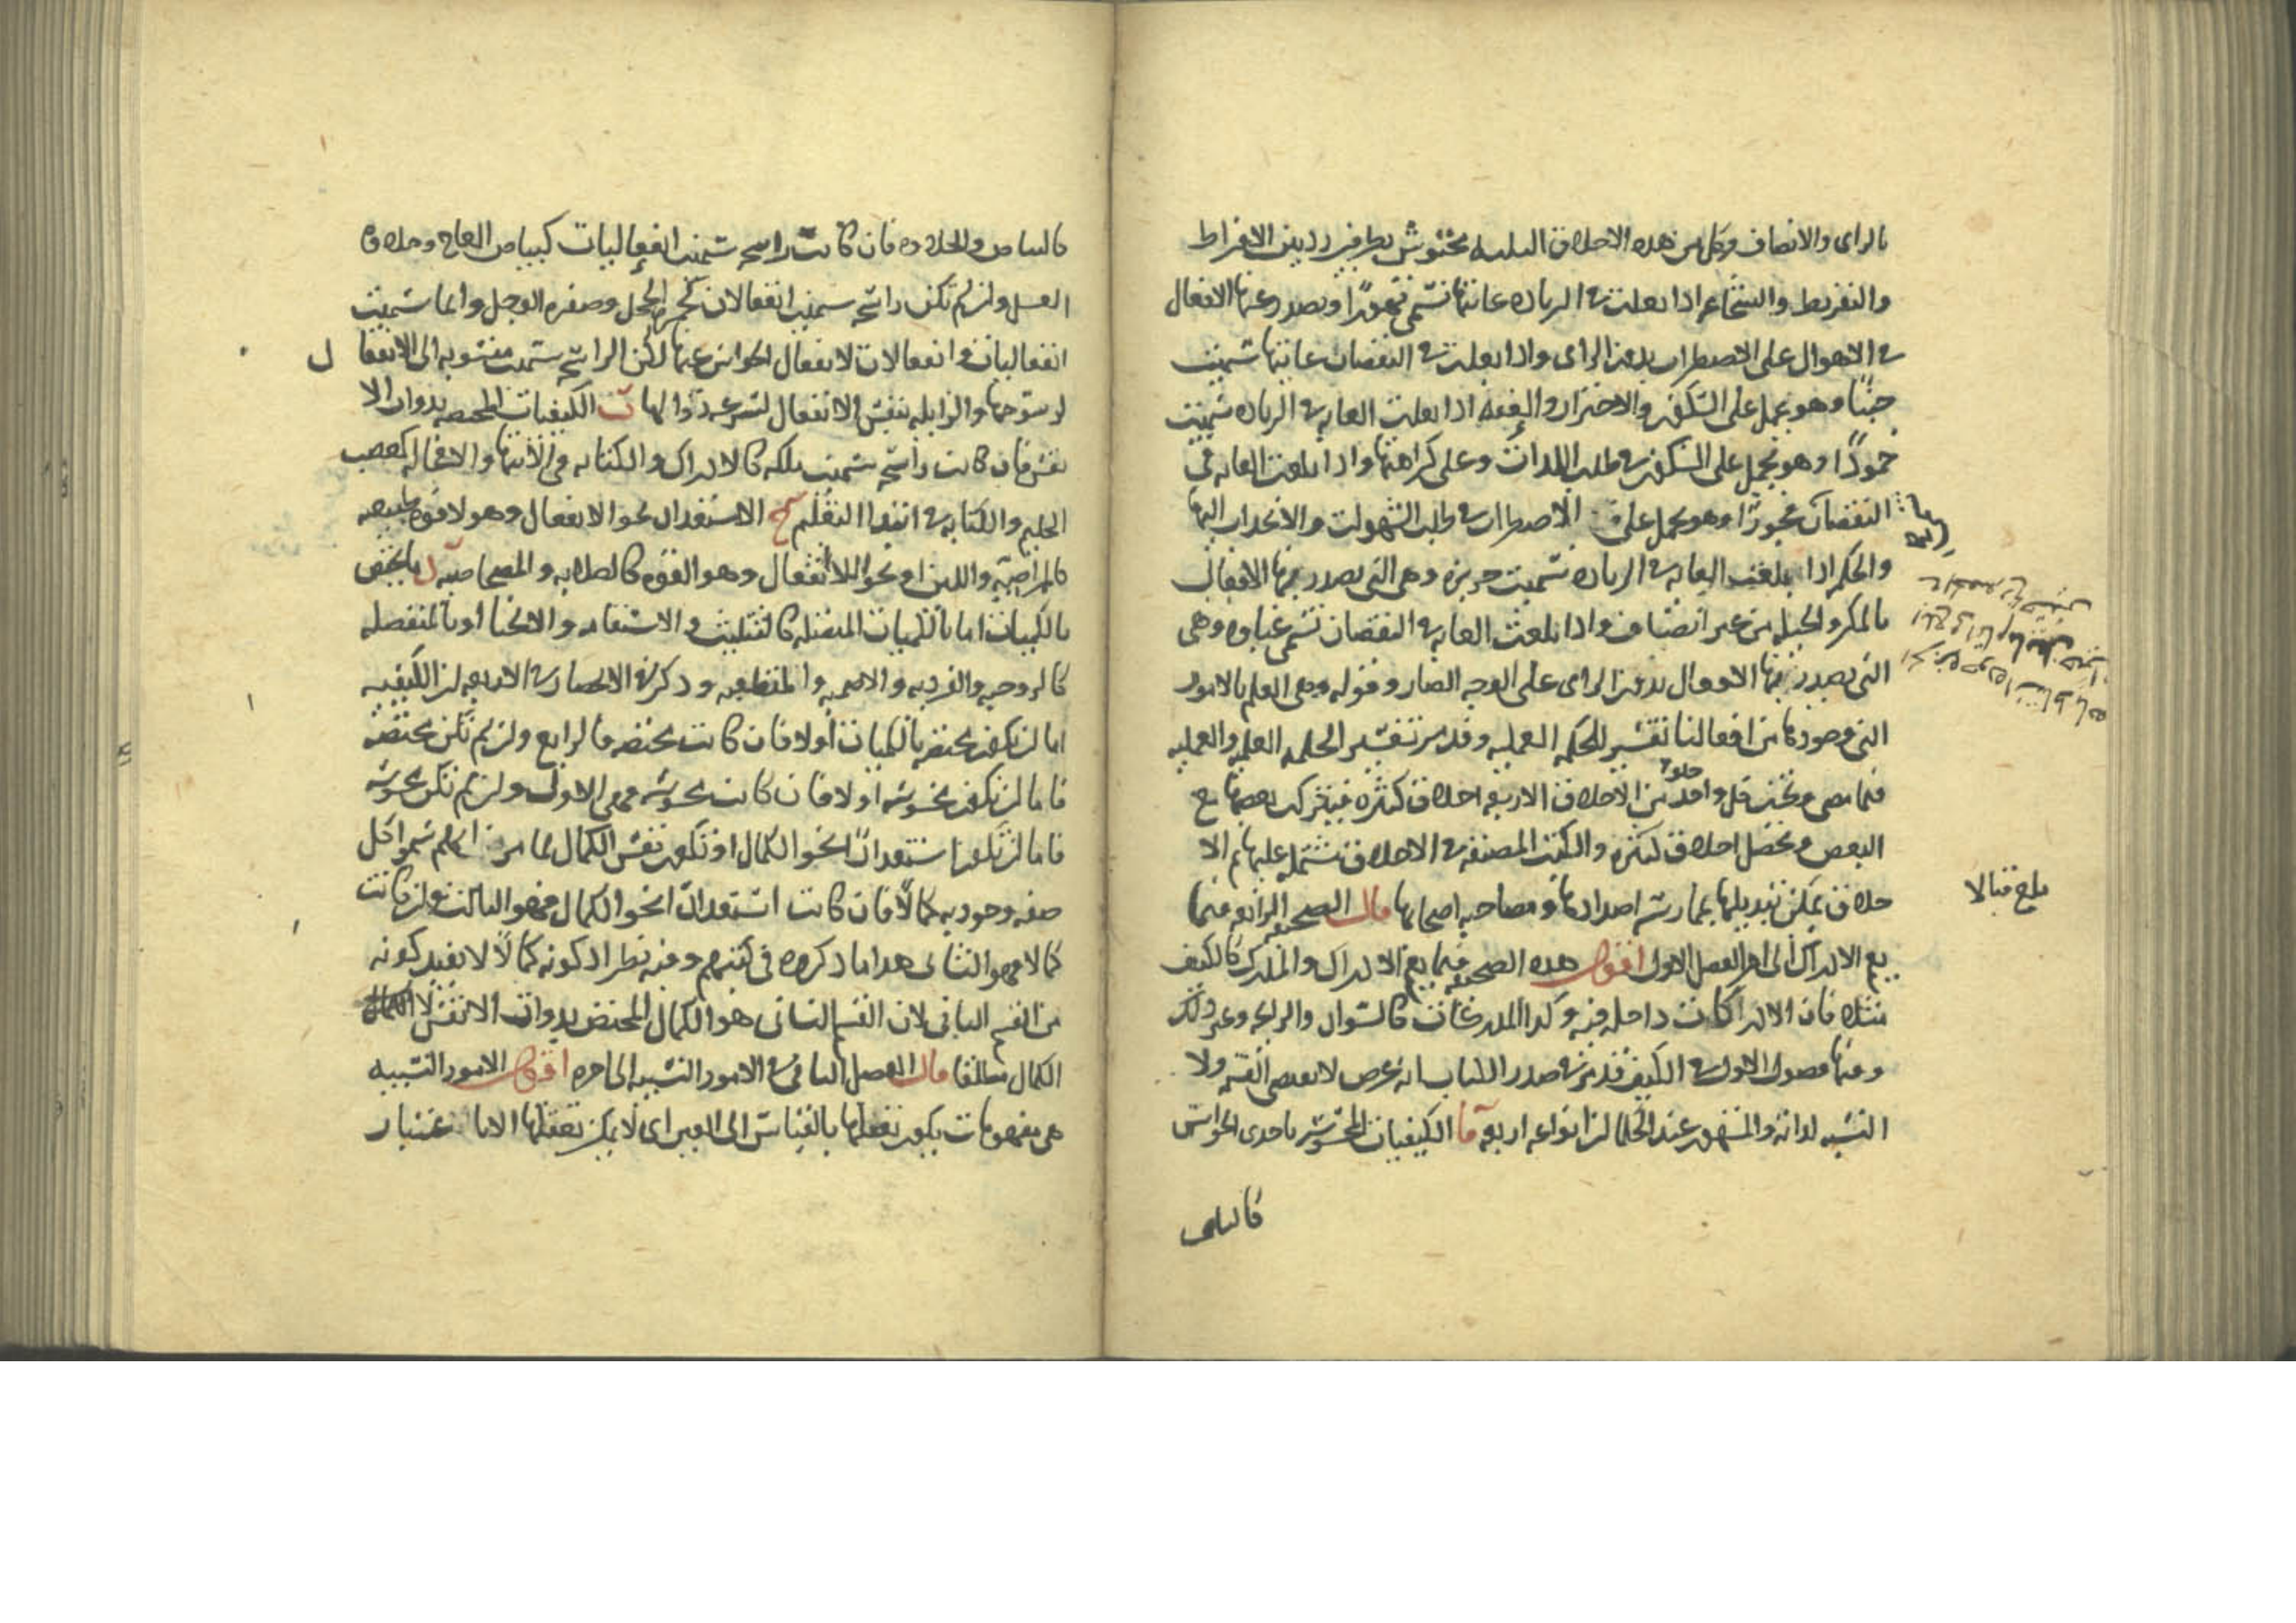 بالراى والانصاف وكل من هذه الاخلاق الثلثه محتوش بطرفين رذيلين الافراط
والتفريط والشجاعه اذا بلغت فى الزياده غايتها تسمى تهورًا ويصدر عنها الافعال
فى الاهوال على الاضطراب بدون الراى واذا بلغت فى النقصان غايتها سميت
جبنًا وهو يحمل على السكون والاحتراز والعفه اذا بلغت الغايه فى الزياده سميت
خمودًا وهو يحمل على السكون فى طلب اللذات وعلى كراهتها واذا بلغت الغايه فى
النقصان فجورًا وهو يحمل على الاضطراب فى طلب الشهوات والانجذاب اليها
والحكمه اذا بلغت الغايه فى الزياده سميت جربزه وهى التى يصدر بها الافعال
بالمكر والحيله من غير انصاف واذا بلغت الغايه فى النقصان تسمى غباوه وهى
التى يصدر بها الافعال بدون الراى على الوجه الضار وقوله وهى العلم بالامور
التى وجودها من افعالنا تفسير للحكمه العمليه وقد مر تفسير الحكمه العلميه والعمليه
فيما مضى وتحت كل واحد من الاخلاق الاربعه اخلاق كثيره فيتركب بعضها مع
البعض ويحصل اخلاق كثيره والكتب المصنفه فى الاخلاق تشتمل عليها ثم الا
خلاق يمكن تبديلها بممارسه اضدادها ومصاحبه اصحابها قال الصحيفه الرابعه فيما
يعم الادراك الى اخر الفصل الاول اقول هذه الصحيفه فيما يعم الادراك والمدرك كالكيف
مثلا فان الادراكات داخله فيه وكذا المدركات كالسواد والرايحه وغير ذلك
وفيها فصول الاول فى الكيف قد مر فى صدر الكتاب انه عرض لا يقتضى القسمه ولا
النسبه لذاته والمشهور عند الحكما ان انواعه اربعه آ الكيفيات المحسوسه باحدى الحواس
بلغ قبالا
كالبياض
كالبياض والحلاوه فان كانت راسخه سميت انفعاليات كبياض العاج وحلاوه
العسل وان لم تكن راسخه سميت انفعالات كحمره الخجل وصفره الوجل وانما سميت
انفعاليات وانفعالات لانفعال الحواس عنها لكن الراسخه سميت منسوبه الى الانفعا ل
لرسوخها والزايله بنفس الانفعال لسرعه زوالها ب الكيفيات المختصه بذوات الا
نفس فان كانت راسخه سميت ملكه كالادراك والكتابه فى انتهائها والا فحاله كغضب
الحليم والكتابه فى ابتدا التعلم ج الاستعداد نحو الانفعال وهو لا قوه طبيعيه
كالمراضيه واللين او نحو اللاانفعال وهو القوه كالصلابه والمصحاحيه د ما يختص
بالكميات اما بالكميات المتصله كالتثليث والاستقامه والانحنا او بالمنفصله
كالزوجيه والفرديه والاصميه والمنطقيه وذكر فى الانحصار فى الاربعه ان الكيفيه
اما ان تكون مختصه بالكميات او لا فان كانت مختصه فالرابع وان لم تكن مختصه
فاما ان تكون محسوسه او لا فان كانت محسوسه فهى الاول وان لم تكن محسوسه
فاما ان تكون استعدادًا نحو الكمال او تكون نفس الكمال لما مر انهم سموا كل
صفه وجوديه كمالًا فان كانت استعدادًا نحو الكمال فهو الثالث وان كانت
كمالا فهو الثانى هذا ما ذكروه فى كتبهم وفيه نظر اذ كونه كمالًا لا يفيد كونه
من القسم الثانى لان القسم الثانى هو الكمال المختص بذوات الانفس لا الكمال
الكمال مطلقا قال الفصل الثانى فى الامور النسبيه الى اخره اقول الامور النسبيه
هى مفهومات يكون تعقلها بالقياس الى الغير اى لا يمكن تعقلها الا با عتبار